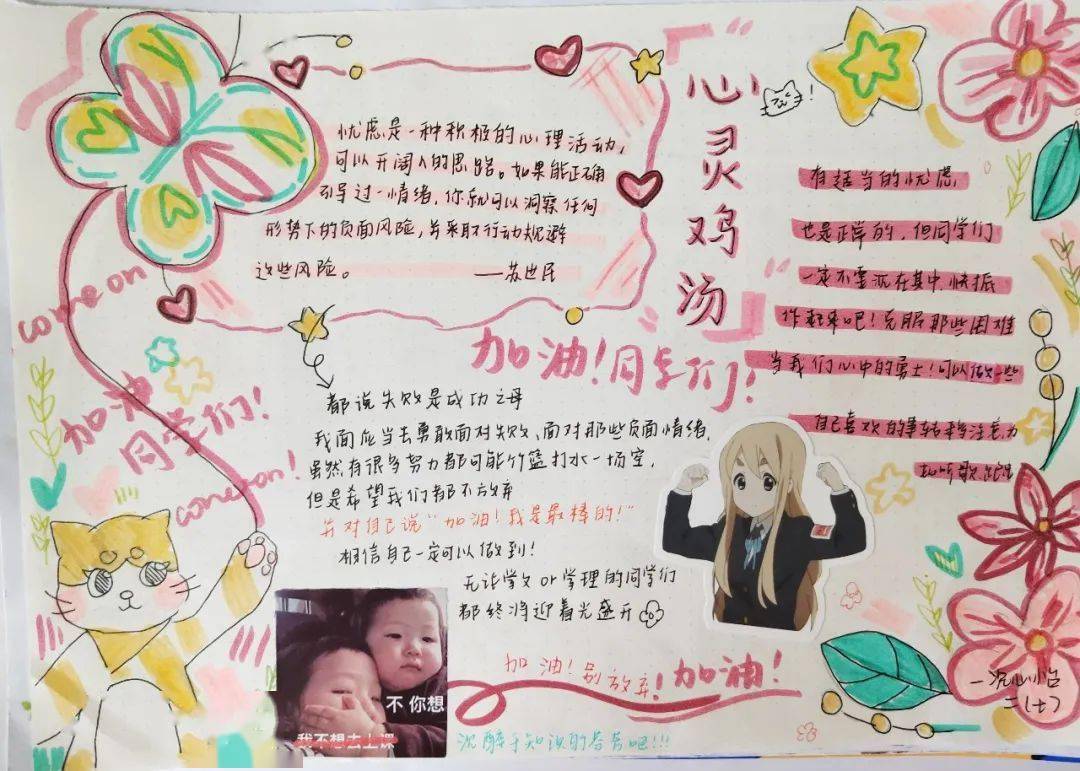 心灵鸡汤
忧虑是一种积极的心理活动,
可以开阔人的思路。如果能正确
引导过一情绪,你就可以洞察任何
形势下的负面风险,并采取行动规避
这些风险。 ——苏世民
come on
加油
同学们!
come on!
加油!同学们!
都说失败是成功之母
我面应当去勇敢面对失败、面对那些负面情绪,
虽然有很多努力都可能竹篮打水一场空,
但是希望我们都不放弃
并对自己说“加油!我是最棒的!”
相信自己一定可以做到!
无论学文or学理的同学们
都终将迎着光盛开
加油!别放弃!加油!
沉醉于知识的芬芳吧!!!
有适当的忧虑
也是正常的,但同学们
一定不要沉在其中,快振
作起来吧!克服那些困难
当我们心中的勇士!可以做一些
自己喜欢的事转移注意力
不你想
我不想去上课
二(七)